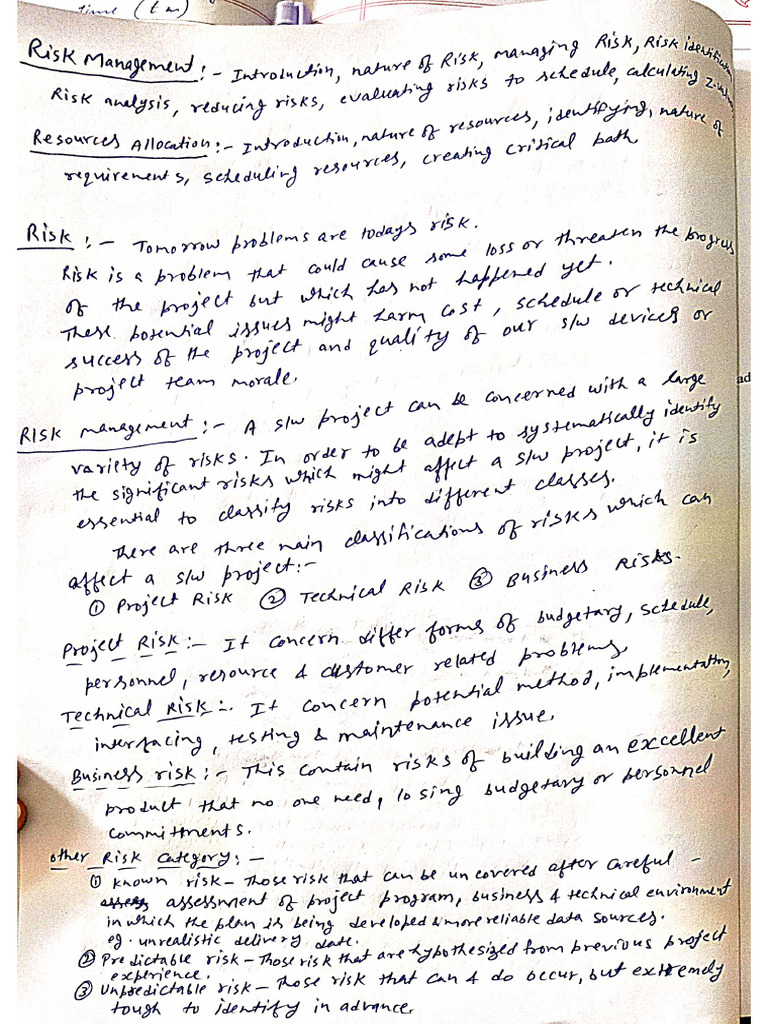 time (tm)
Risk Management :- Introduction, nature of Risk, managing Risk, Risk identification,
Risk analysis, reducing risks, evaluating risks to schedule, calculating
Resources Allocation :- Introduction, nature of resources, identifying, nature of
requirements, scheduling resources, creating critical path
Risk :- Tomorrow problems are todays risk.
Risk is a problem that could cause some loss or threaten the progress
of the project but which has not happened yet.
These potential issues might harm cost, schedule or technical
success of the project and quality of our s/w devices or
project team morale.
ad
Risk management :- A s/w project can be concerned with a large
variety of risks. In order to be adept to systematically identify
the significant risks which might affect a s/w project, it is
essential to classify risks into different classes.
There are three main classifications of risks which can
affect a s/w project :-
① Project Risk ② Technical Risk ③ Business Risks.
Project Risk :- It concern differ forms of budgetary, schedule,
personnel, resource & customer related problems.
Technical Risk :- It concern potential method, implementation,
interfacing, testing & maintenance issue.
Business risk :- This contain risks of building an excellent
product that no one need, losing budgetary or personnel
committments.
other Risk Category :-
① Known risk - Those risk that can be uncovered after careful -
assessment of project program, business & technical environment
in which the plan is being developed & more reliable data sources.
eg. unrealistic delivery date.
② Predictable risk - Those risk that are hypothesized from previous project
experience.
③ Unpredictable risk - Those risk that can & do occur, but extremely
tough to identify in advance.